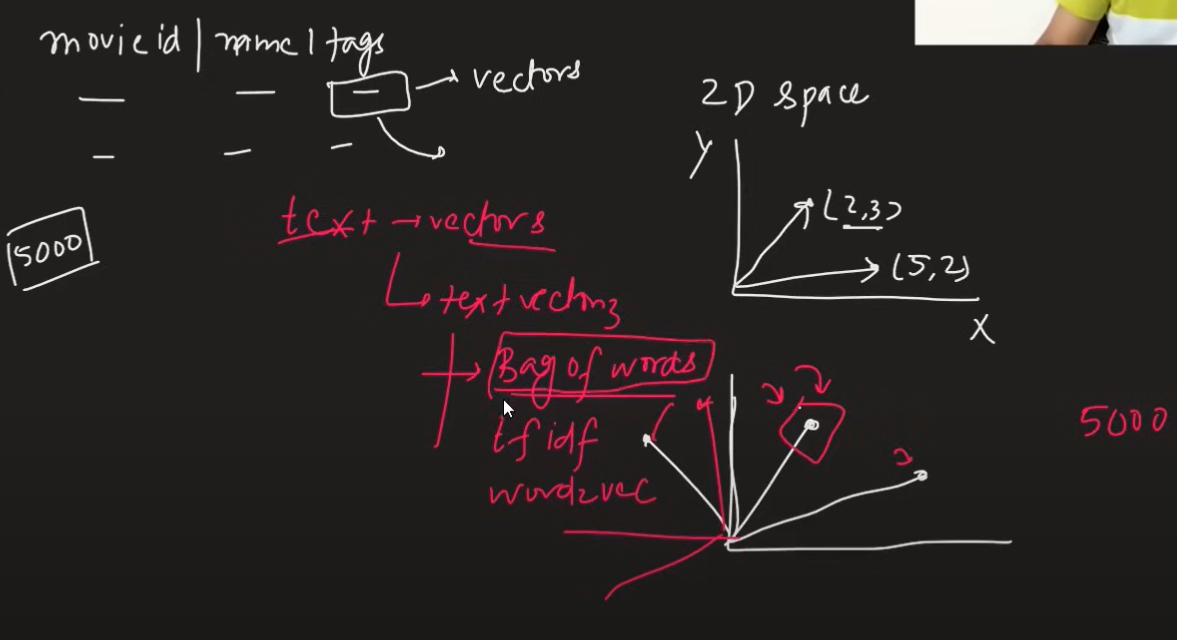 movie id | name | tags
vectors
5000
text → vectors
text vectors
Bag of words
tf idf
word2vec
2D space
Y
(2,3)
(5,2)
X
5000